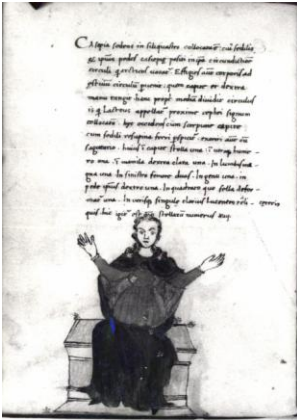 Casepia sedens in siliquastro collocatur: cui sedilis
& ipsius pedes casiepie positi in ipsa circunductione
circuli q arcticus uocat. Effigies autem corporis ad
estiuum circulum peruenit: quem capite et dextra
manu tangit hanc prope mediam diuidit circulus
is q lacteus appellat proxime cephei signum
collocatam. hec occidens cum scorpione capite
cum sedili resupina ferri perspicit. exorit autem cum
sagittario. huius i capite stella una. i utroque hume-
ro una. i mamila dextra clara una. In lumbis ma-
gna una. In sinistro femore duas. In genu una. in
pede ipsius dextro una. In quadrato quo sella defor-
mat una. In utrisque singule clarius lucentes ceteris
hec igitur est stellarum numerus